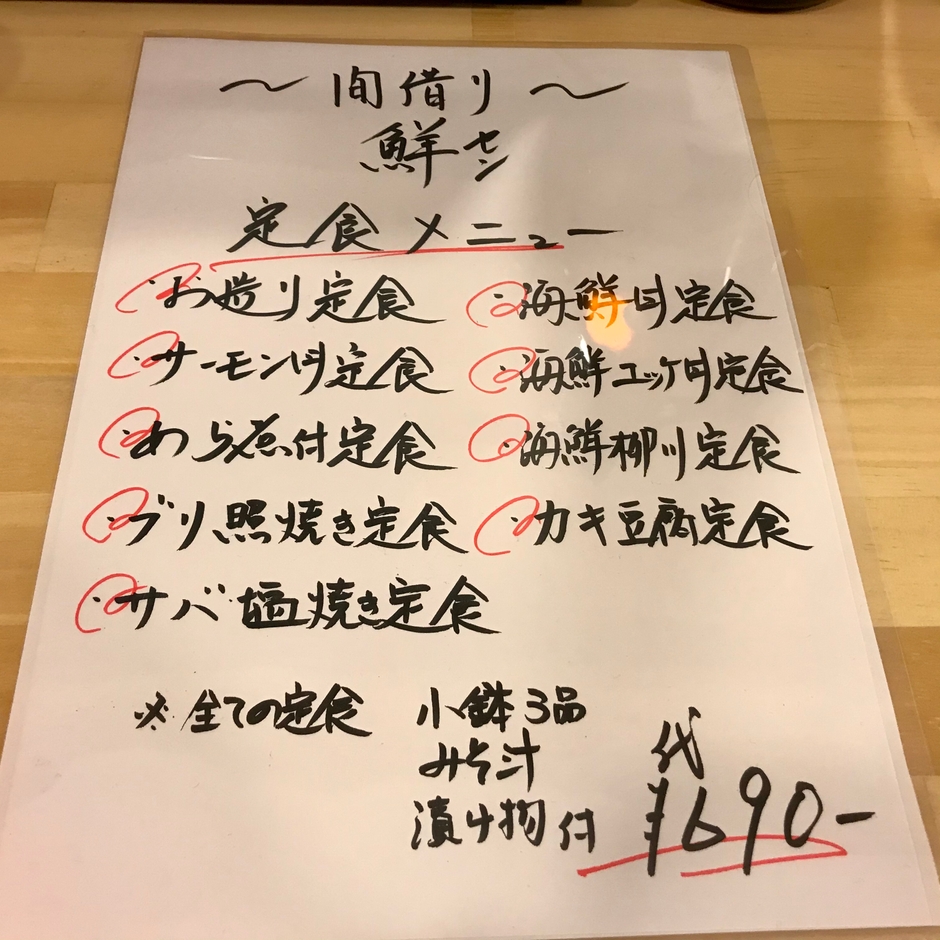 〜間借り〜
鮮セン
定食メニュー
・お造り定食
・サーモン丼定食
・あら煮付定食
・ブリ照焼き定食
・サバ塩焼き定食
・海鮮丼定食
・海鮮ユッケ丼定食
・海鮮柳川定食
・カキ豆腐定食
※全ての定食 小鉢3品
みそ汁
漬け物付
代
¥690-